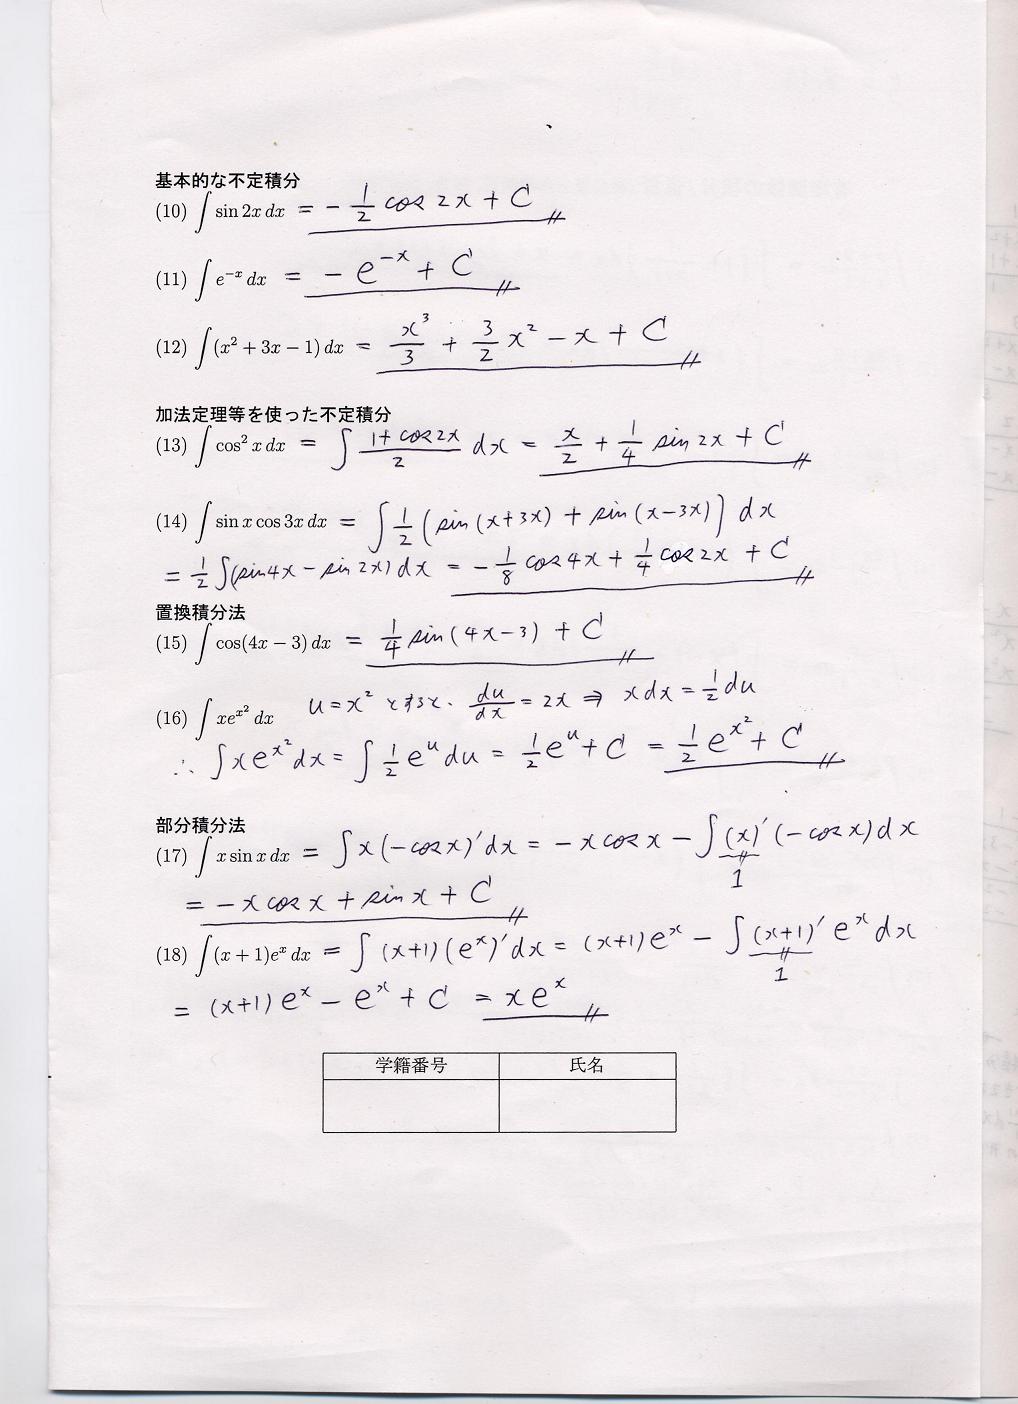 基本的な不定積分
(10) ∫ sin 2x dx = - 1/2 cos 2x + C
(11) ∫ e^{-x} dx = - e^{-x} + C
(12) ∫ (x² + 3x − 1) dx = x³/3 + 3/2 x² − x + C
加法定理等を使った不定積分
(13) ∫ cos² x dx = ∫ (1+cos2x)/2 dx = x/2 + 1/4 sin 2x + C
(14) ∫ sin x cos 3x dx = ∫ 1/2 (sin(x+3x) + sin(x−3x)) dx
= 1/2 ∫(sin4x − sin 2x) dx = − 1/8 cos4x + 1/4 cos2x + C
置換積分法
(15) ∫ cos(4x − 3) dx = 1/4 sin(4x−3) + C
(16) ∫ xe^{x²} dx u = x² とすると. du/dx = 2x ⇒ x dx = 1/2 du
∴ ∫ x e^{x²} dx = ∫ 1/2 e^u du = 1/2 e^u + C = 1/2 e^{x²} + C
部分積分法
(17) ∫ x sin x dx = ∫ x(−cos x)′ dx = − x cos x − ∫ (x)′ (−cos x) dx
1
= − x cos x + sin x + C
(18) ∫ (x + 1)e^x dx = ∫ (x+1) (e^x)′ dx = (x+1) e^x − ∫ (x+1)′ e^x dx
1
= (x+1) e^x − e^x + C = x e^x
学籍番号 氏名